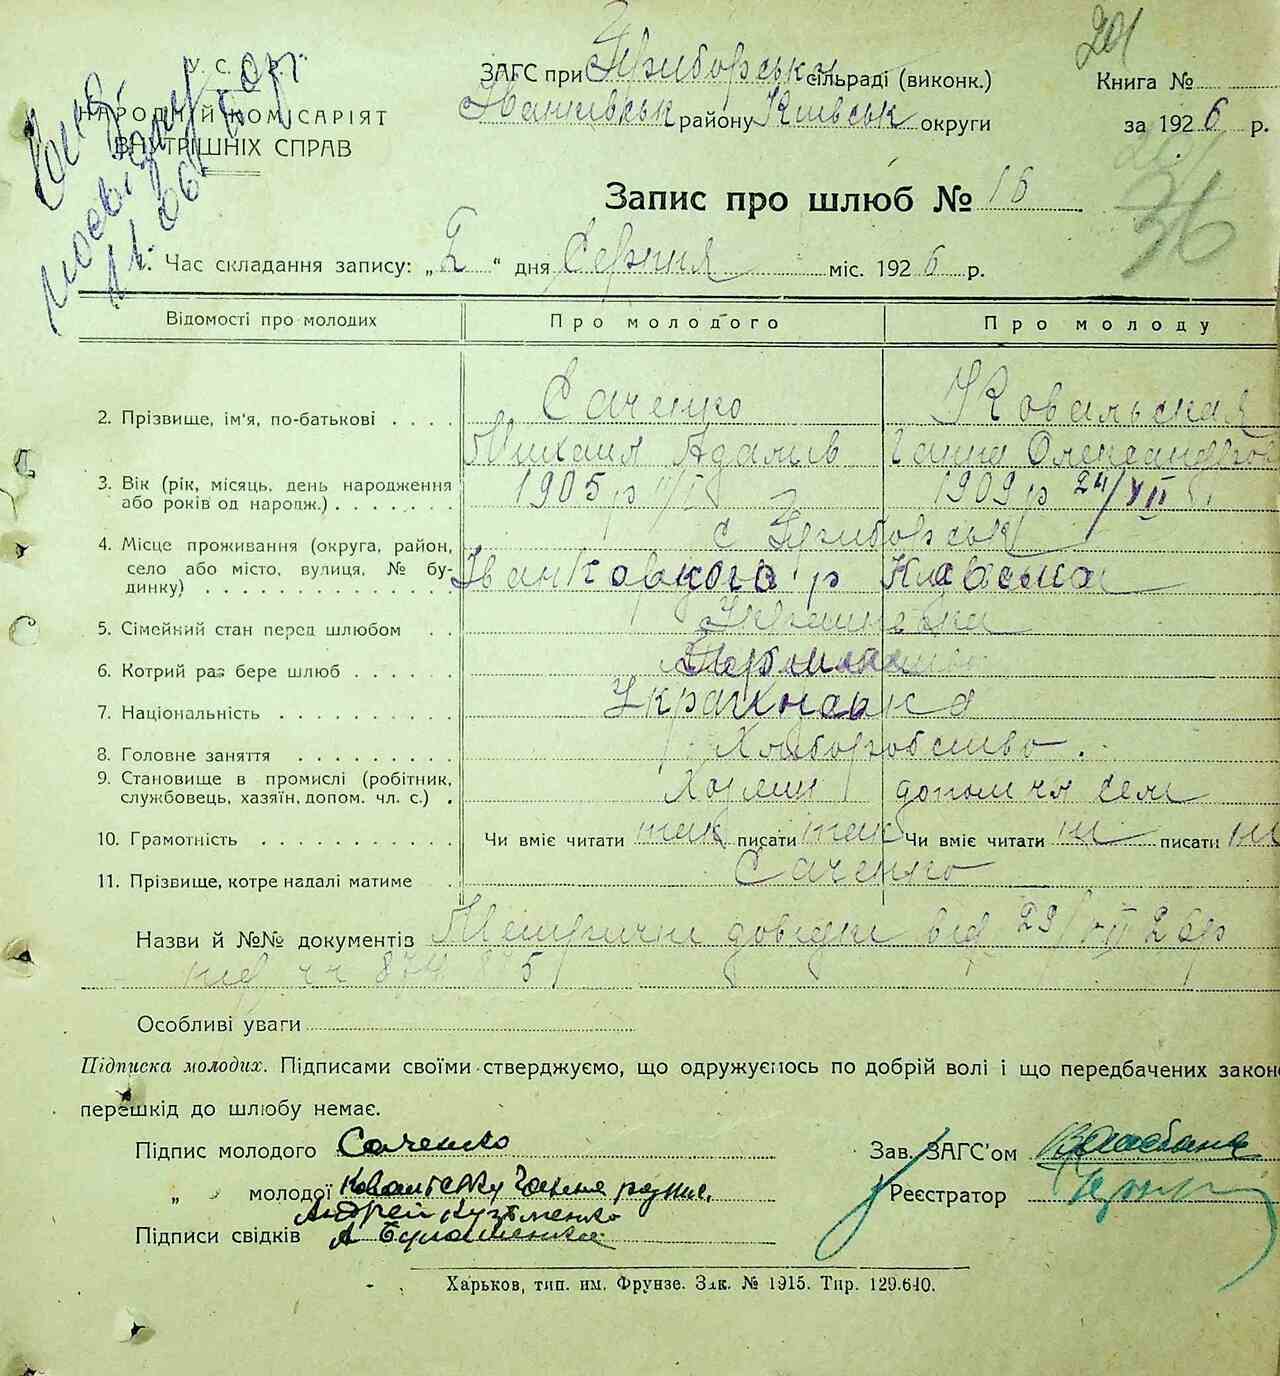 201
У. С. Р. Р.
НАРОДНІЙ КОМІСАРІЯТ
ВНУТРІШНІХ СПРАВ
ЗАГС при Приборськ сільраді (виконк.)
Іванківськ району Київськ округи
Книга №
за 1926 р.
36
Запис про шлюб № 16
1. Час складання запису: „ “ дня Серпня міс. 1926 р.
Відомості про молодих Про молодого Про молоду
2. Прізвище, ім'я, по-батькові . . . . Саченко Ковальская
Михаил Адамив Ганна Олександров
3. Вік (рік, місяць, день народження 1905 р 1909 р 24/VII
або років од народж.) . . . . . .
4. Місце проживання (округа, район, с Приборськ
село або місто, вулиця, № бу- Іванковского р Київська
динку)
5. Сімейний стан перед шлюбом . .
6. Котрий раз бере шлюб . . . . . .
7. Національність . . . . . . . . . . Українська
8. Головне заняття . . . . . . . . . Хліборобство.
9. Становище в промислі (робітник, Хазяин допом чл семі
службовець, хазяїн, допом. чл. с.) .
10. Грамотність . . . . . . . . . . . Чи вміє читати так писати так Чи вміє читати ні писати ні
11. Прізвище, котре надалі матиме . Саченко
Назви й №№ документів Метричні довідки від 29/VII 26 р
під 874 875
Особливі уваги
Підписка молодих. Підписами своїми стверджуємо, що одружуємось по добрій волі і що передбачених законо
перешкід до шлюбу немає.
Підпис молодого Саченко
Зав. ЗАГС'ом
„ молодої
Реєстратор
Андрей Кузьменко
Підписи свідків А
Харьков, тип. им. Фрунзе. Зак. № 1915. Тир. 129.640.